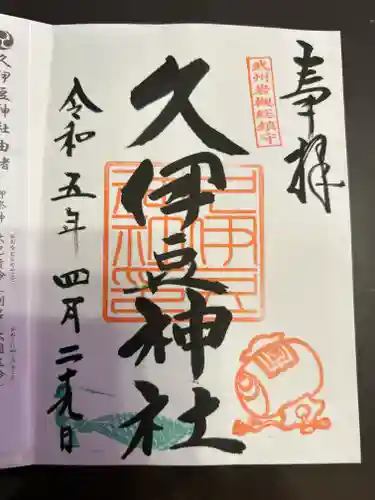 奉拝
武州岩槻総鎮守
久伊豆神社
令和五年四月二十九日
久伊豆神社由緒
御祭神